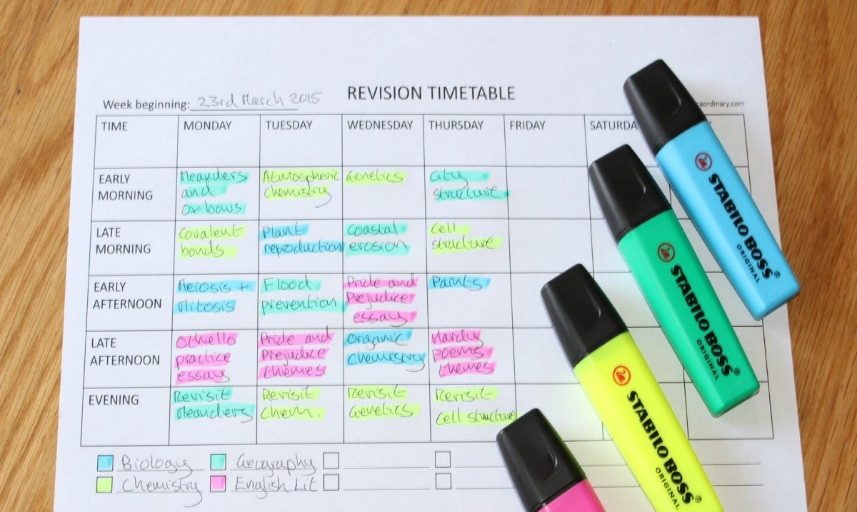 Week beginning: 23rd March 2015
REVISION TIMETABLE
aordinary.com
TIME
MONDAY
TUESDAY
WEDNESDAY
THURSDAY
FRIDAY
SATURDA
EARLY
MORNING
Meanders
and
Ox-bows
Atmospheric
chemistry
Genetics
City
structure
LATE
MORNING
Covalent
bonds
Plant
reproduction
Coastal
erosion
Cell
structure
EARLY
AFTERNOON
Meiosis +
Mitosis
Flood
prevention
Pride and
Prejudice
essay
LATE
AFTERNOON
Othello
practice
essay
Pride and
Prejudice
themes
Organic
Chemistry
Hardy
poems
themes
EVENING
Revisit
Meanders
Revisit
Chem.
Revisit
Genetics
Revisit
Cell structure
Biology
Geography
Chemistry
English Lit
STABILO BOSS
ORIGINAL
STABILO BOSS
ORIGINAL
STABILO BOSS
ORIGINAL